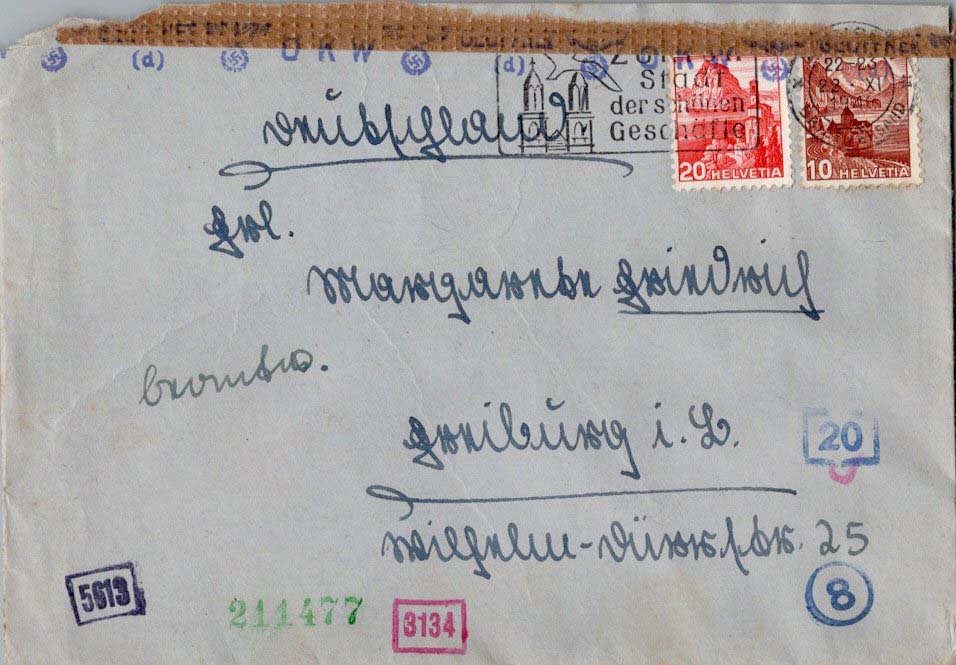 GEÖFFNET
O K W
(d)
(d)
O K W
(d)
GEÖFFNET
Zürich
Stadt
der schönen
Geschäfte
22-23
22. XI
VERSAND
20 HELVETIA
10 HELVETIA
Deutschland
Frl.
Margarete Friedrich
beantw.
Freiburg i. B.
20
Wilhelm-Dürrstr. 25
8
5613
211477
3134